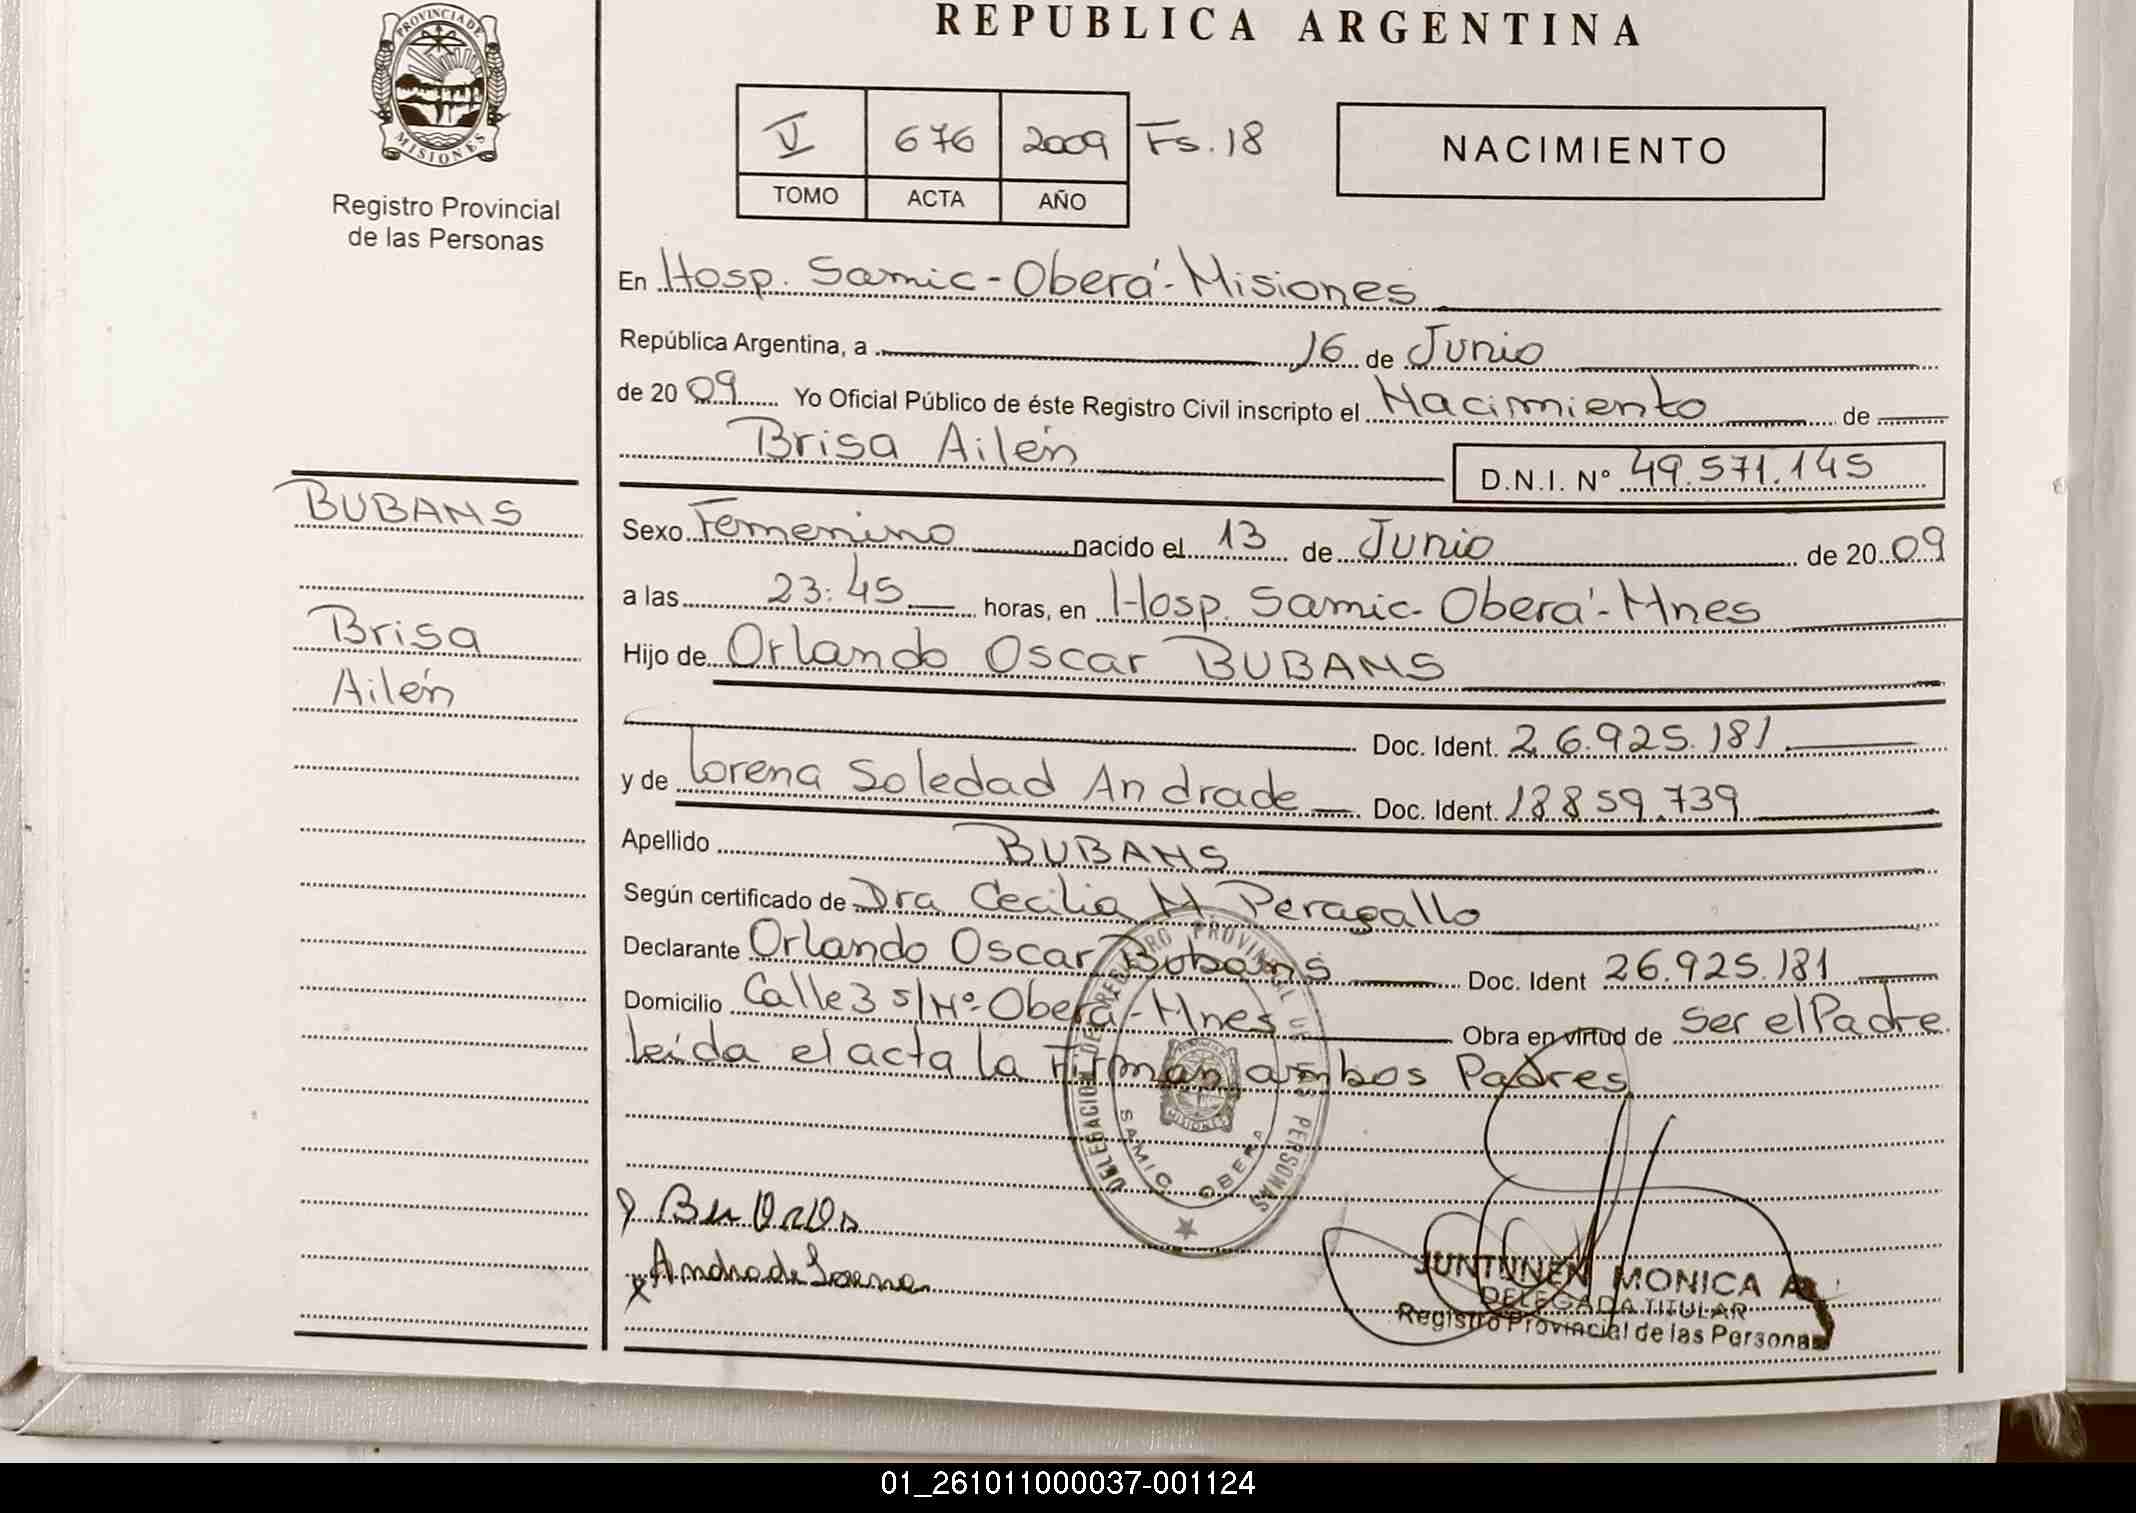 REPUBLICA ARGENTINA
PROVINCIA DE MISIONES
Registro Provincial
de las Personas
V 676 2009 Fs. 18
TOMO ACTA AÑO
NACIMIENTO
En Hosp. Samic - Oberá - Misiones
República Argentina, a 16 de Junio
de 2009 Yo Oficial Público de éste Registro Civil inscripto el Nacimiento de
Brisa Ailén D.N.I. Nº 49.571.145
BUBANS
Brisa
Ailén
Sexo Femenino nacido el 13 de Junio de 2009
a las 23:45 horas, en Hosp. Samic - Oberá - Mnes
Hijo de Orlando Oscar BUBANS
Doc. Ident. 26.925.181
y de Lorena Soledad Andrade Doc. Ident. 18859.739
Apellido BUBANS
Según certificado de Dra Cecilia M. Peragallo
Declarante Orlando Oscar Bubans Doc. Ident 26.925.181
Domicilio Calle 3 s/Nº - Oberá - Mnes Obra en virtud de Ser el Padre
leída el acta la Firman ambos Padres
DELEGACION DEL REGISTRO PROVINCIAL DE LAS PERSONAS
SAMIC OBERA
MISIONES
Andrade Lorena
JUNTUNEN MONICA A
DELEGADA TITULAR
Registro Provincial de las Personas
01_261011000037-001124